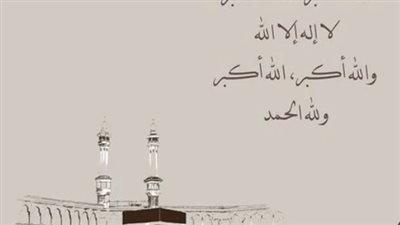 لا إله إلا الله
والله أكبر، الله أكبر
ولله الحمد